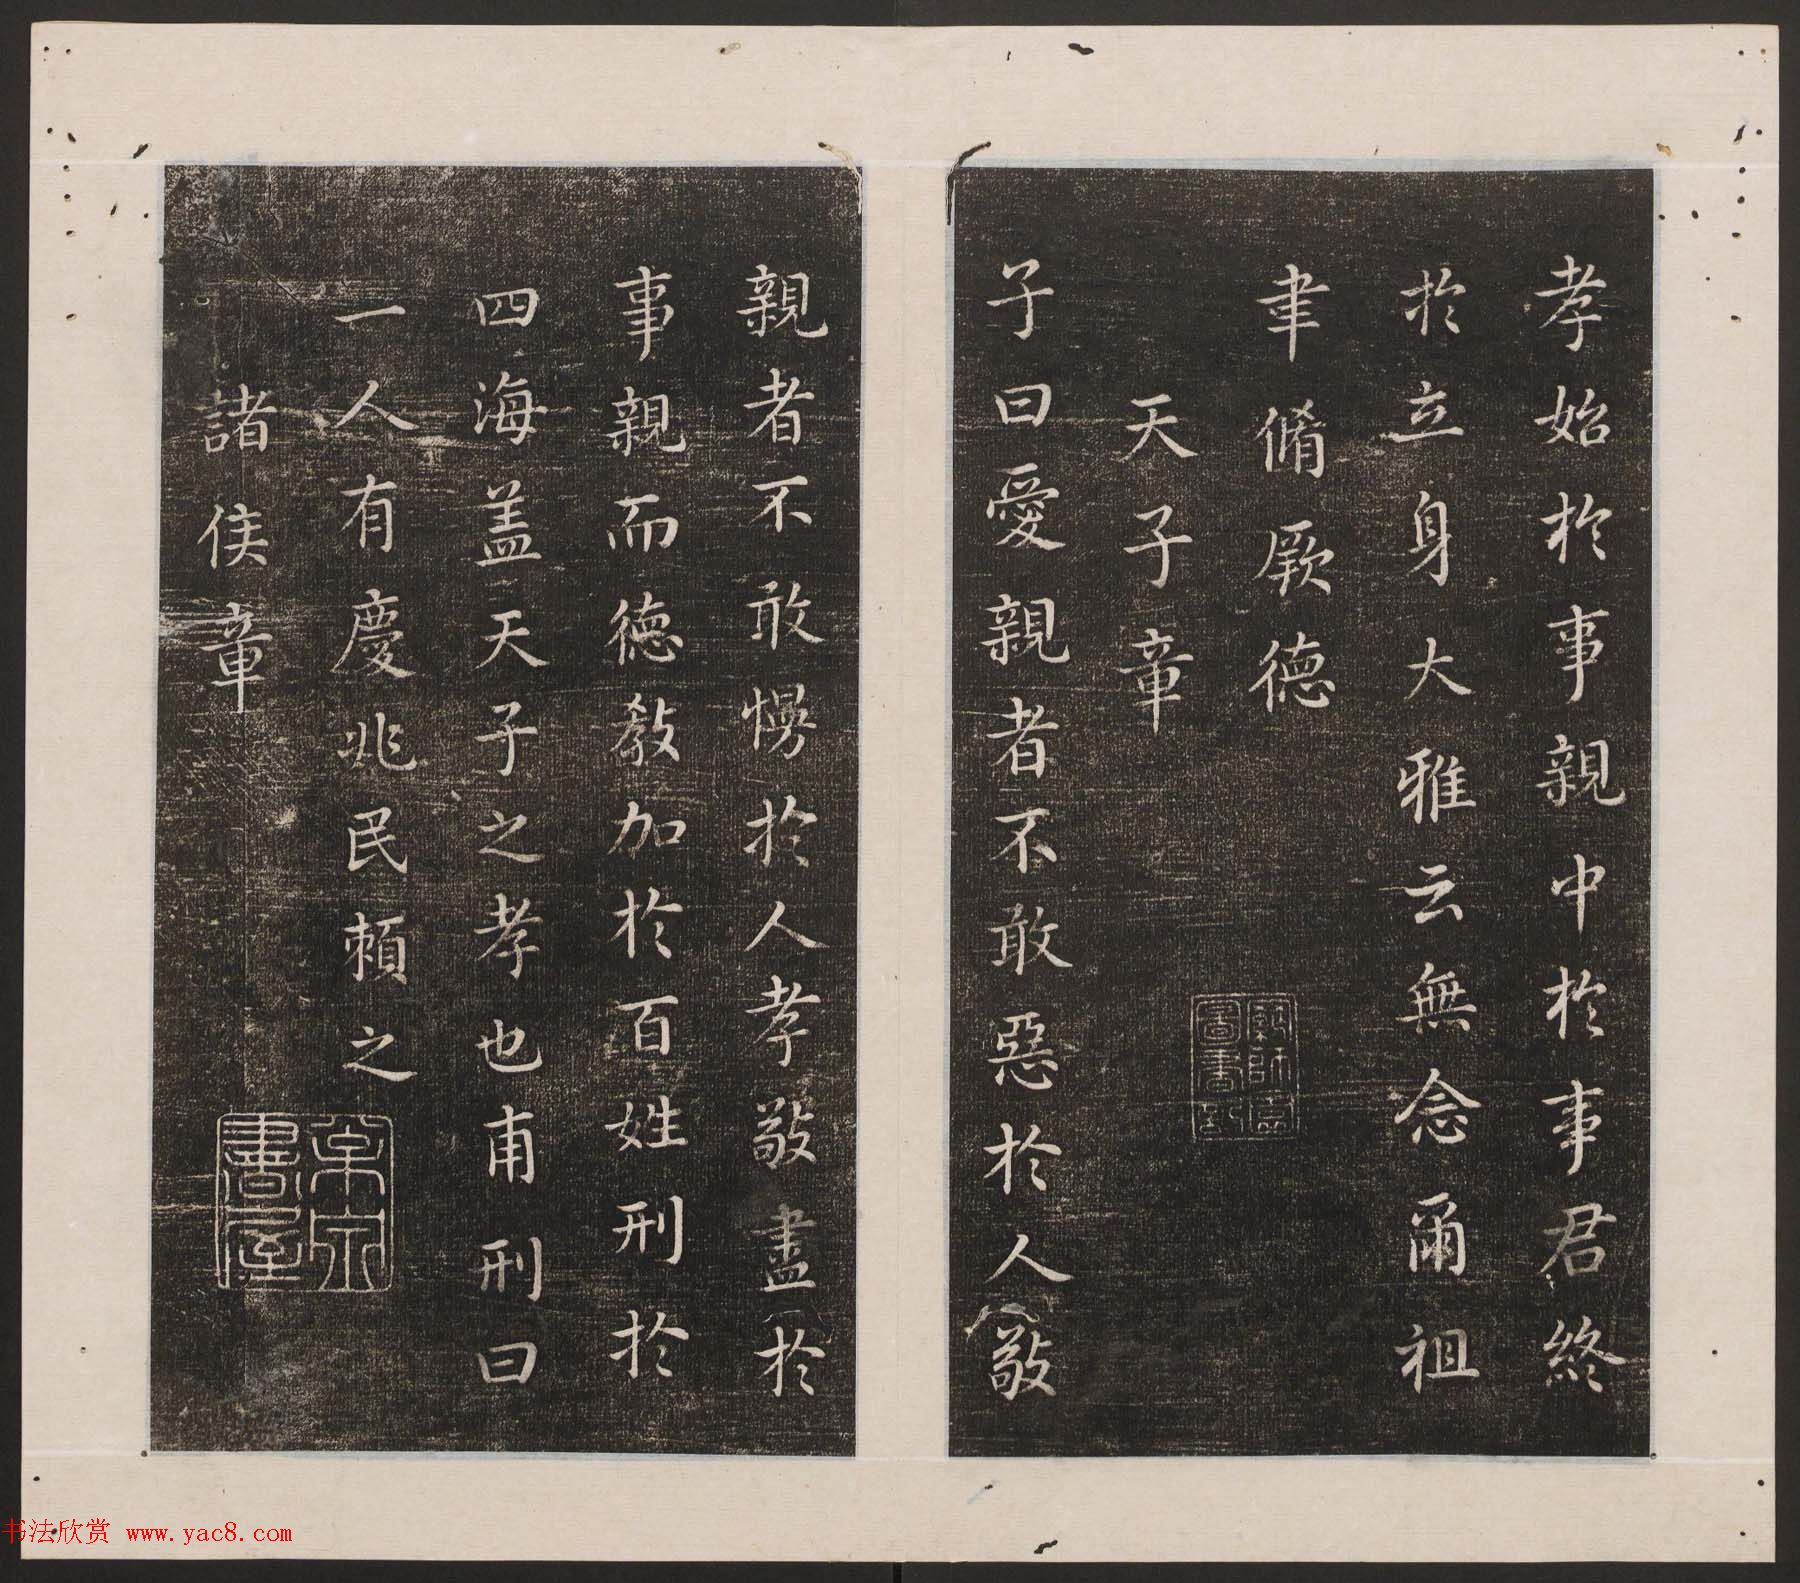 孝始於事親中於事君終
於立身大雅云無念爾祖
聿脩厥德
天子章
子曰愛親者不敢惡於人敬
親者不敢慢於人孝敬盡於
事親而德教加於百姓刑於
四海盖天子之孝也甫刑曰
一人有慶兆民賴之
諸侯章
書屋
书法欣赏 www.yac8.com